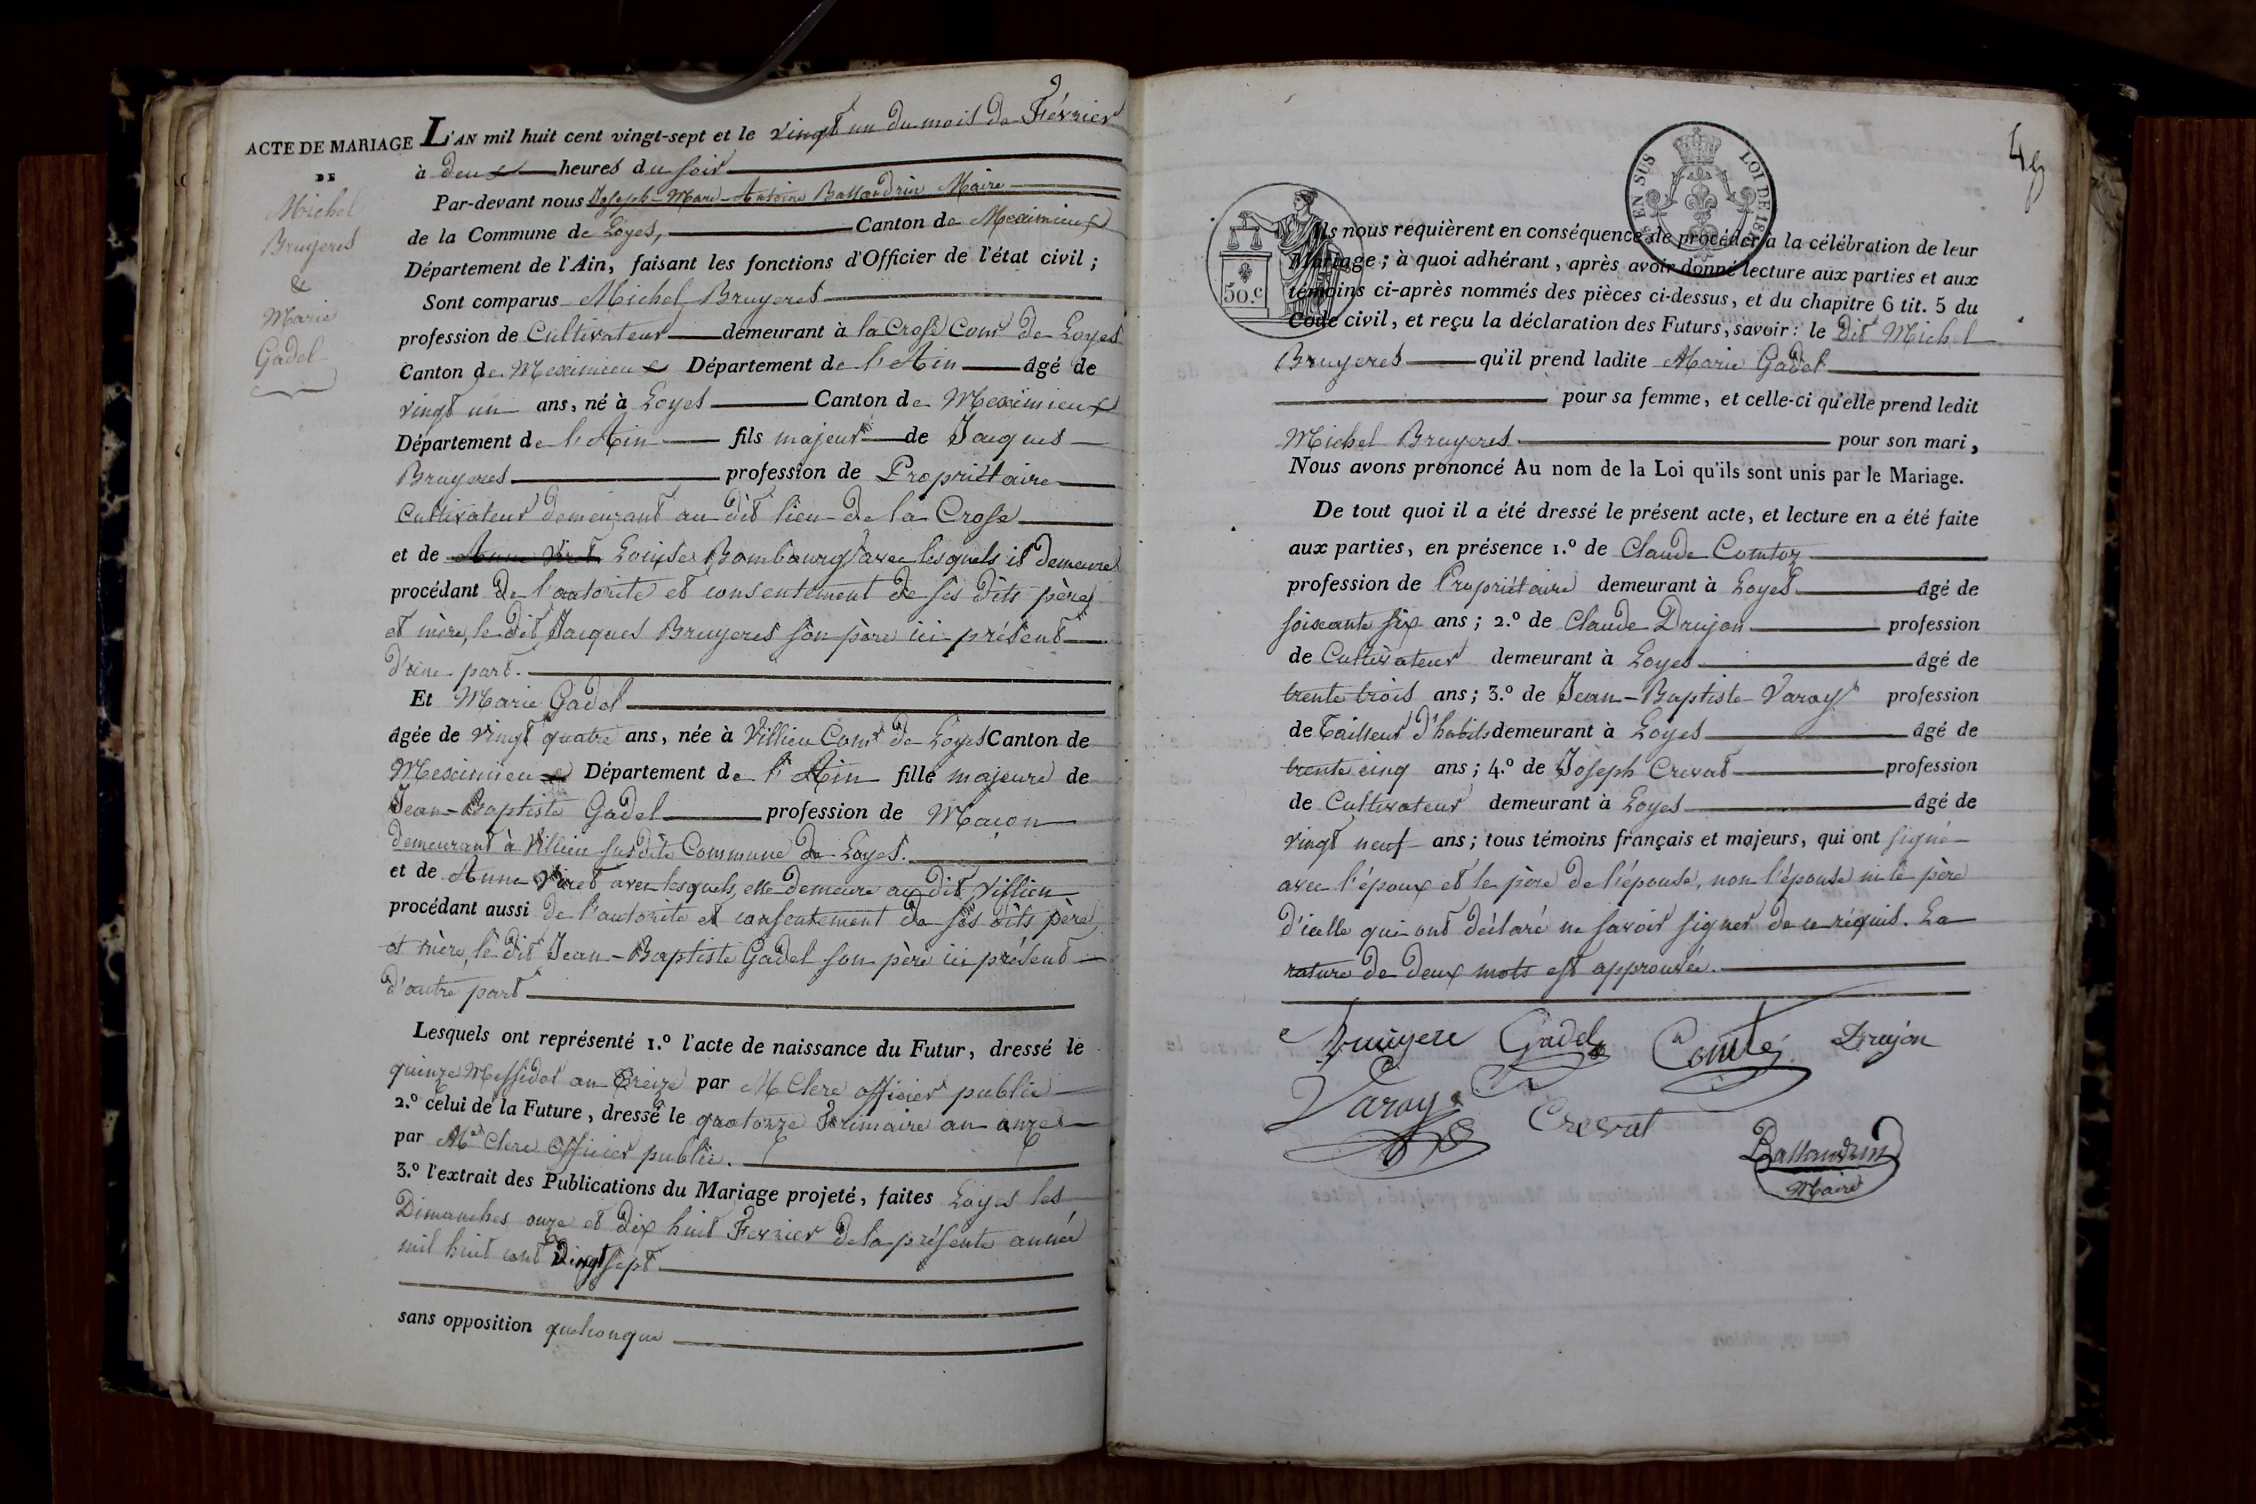 ACTE DE MARIAGE
DE
Michel
Bruyeres
&
Marie
Gadel
L'AN mil huit cent vingt-sept et le vingt un du mois de Février
à deux heures du soir
Par-devant nous Joseph-Marie-Antoine Ballandrin Maire
de la Commune de Loyes, Canton de Meximieux
Département de l'Ain, faisant les fonctions d'Officier de l'état civil ;
Sont comparus Michel Bruyeres
profession de Cultivateur demeurant à la Crose Comne de Loyes
Canton de Meximieux Département de l'Ain âgé de
vingt un ans, né à Loyes Canton de Meximieux
Département de l'Ain fils majeur de Jacques
Bruyeres profession de Propriétaire
Cultivateur demeurant au dit lieu de la Crose
et de Anne Viret Louise Bombourg avec lesquels il demeure
procédant de l'autorité et consentement de ses dits père
et mère, le dit Jacques Bruyeres son père ici présent
d'une part.
Et Marie Gadel
âgée de vingt quatre ans, née à Villieu Comne de Loyes Canton de
Meximieux Département de l'Ain fille majeure de
Jean-Baptiste Gadel profession de Maçon
demeurant à Villieu susdite Commune de Loyes.
et de Anne Viret avec lesquels elle demeure au dit Villieu
procédant aussi de l'autorité et consentement de ses dits père
et mère, le dit Jean-Baptiste Gadel son père ici présent
d'autre part
Lesquels ont représenté 1.º l'acte de naissance du Futur, dressé le
quinze Messidor an treize par M Clerc officier public
2.º celui de la Future, dressé le quatorze Frimaire an onze
par Mr Clerc officier public.
3.º l'extrait des Publications du Mariage projeté, faites Loyes les
Dimanches onze et dix huit Fevrier de la présente année
mil huit cent vingt sept
sans opposition quelconque
48
EN SUS
LOI DE 181
50.c
Ils nous requièrent en conséquence de procéder à la célébration de leur
Mariage ; à quoi adhérant, après avoir donné lecture aux parties et aux
témoins ci-après nommés des pièces ci-dessus, et du chapitre 6 tit. 5 du
Code civil, et reçu la déclaration des Futurs, savoir : le dit Michel
Bruyeres qu'il prend ladite Marie Gadel
pour sa femme, et celle-ci qu'elle prend ledit
Michel Bruyeres pour son mari,
Nous avons prononcé Au nom de la Loi qu'ils sont unis par le Mariage.
De tout quoi il a été dressé le présent acte, et lecture en a été faite
aux parties, en présence 1.º de Claude Comtoz
profession de Propriétaire demeurant à Loyes âgé de
soixante six ans ; 2.º de Claude Drujon profession
de Cultivateur demeurant à Loyes âgé de
trente trois ans ; 3.º de Jean-Baptiste Varay profession
de Tailleur d'habits demeurant à Loyes âgé de
trente cinq ans ; 4.º de Joseph Crevat profession
de Cultivateur demeurant à Loyes âgé de
vingt neuf ans ; tous témoins français et majeurs, qui ont signé
avec l'époux et le père de l'épouse, non l'épouse ni le père
d'icelle qui ont déclaré ne savoir signer de ce réquis. La
rature de deux mots est approuvée.
Bruiyere Gadel Comté Drujon
Varay Crevat
Ballandrin
Maire